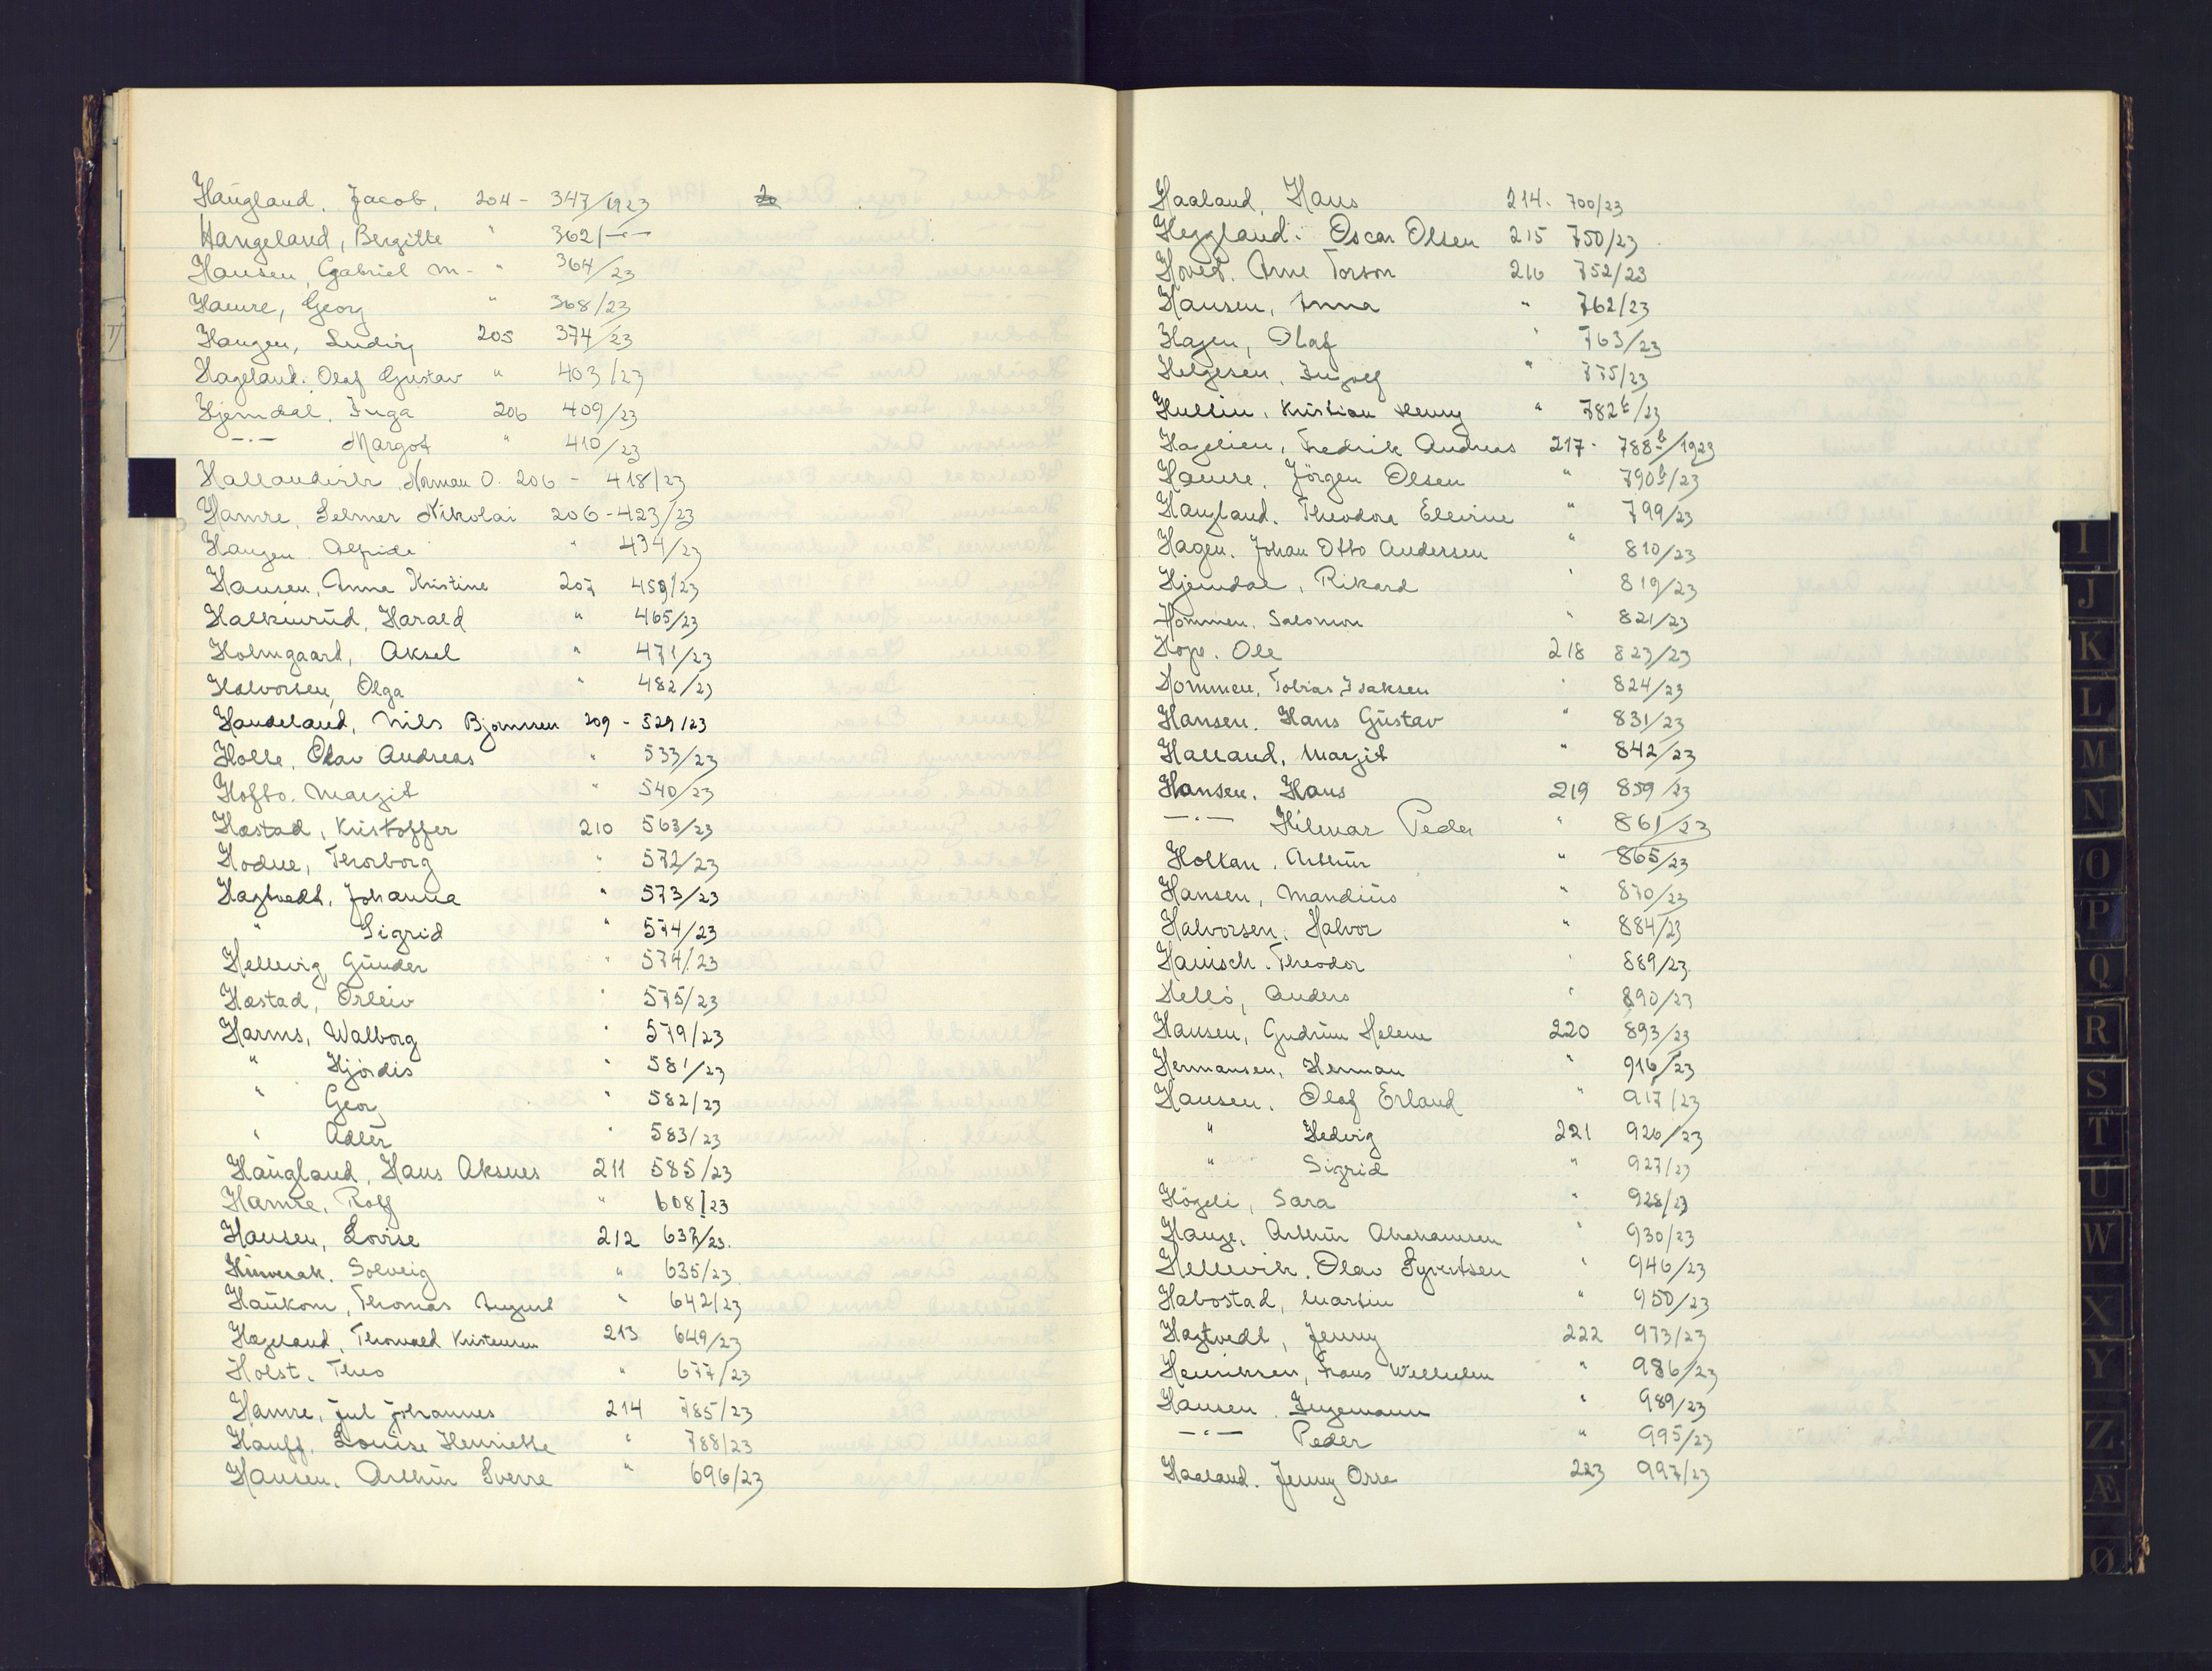 Haugland, Jacob, 204 - 347/1923
Hangeland, Bergitte " 362/-"-
Hansen, Gabriel M. - " 364/23
Hamre, Georg " 368/23
Haugen, Ludvig 205 374/23
Hageland. Olaf Gustav " 403/23
Hjemdal. Inga 206 409/23
-"- Margot " 410/23
Hallandvik Norman O. 206 - 418/23
Hamre, Selmer Nikolai 206 - 423/23
Haugen Alfride " 434/23
Hansen, Anna Kristine 207 459/23
Halkinrud, Harald " 465/23
Holmgaard, Aksel " 471/23
Halvorsen, Olga " 482/23
Haudeland, Nils 209 - 529/23
Holle, Olav Andreas " 533/23
Hofto. Margit " 540/23
Hæstad, Kristoffer 210 563/23
Hodne, Thorborg " 572/23
Hagtvedt, Johanna " 573/23
" Sigrid " 574/23
Hellevig Gunder " 574/23
Hæstad, Orleiv " 575/23
Harms, Walborg " 579/23
" Hjördis " 581/23
" Georg " 582/23
" Adler " 583/23
Haugland, Hans Aksnes 211 585/23
Hamre, Rolf " 608/23
Hansen, Lovise 212 637/23.
Solveig " 635/23
Haukom, Thomas August " 642/23
Hageland, Thorvald Kristensen 213 649/23
Holst, Theo " 677/23
Hamre, Jul Johannes 214 785/23
Hauff, Louise Henriette " 788/23
Hansen. Arthur Sverre " 696/23
Haaland, Hans 214. 700/23
Heggland. Oscar Olsen 215 750/23
Hoved. Arne Torson 216 752/23
Hansen, Anna " 762/23
Hagen, Olaf " 763/23
Helgesen, Ingolf " 775/23
Hullin, Kristian Henry " 782b/23
Hagelien, Fredrik Andreas 217 - 788b/1923
Hamre, Jörgen Olsen " 790b/23
Haugland. Theodora Elevine " 799/23
Hagen. Johan Otto Andersen " 810/23
Hjemdal, Rikard " 819/23
Hommen. Salomon " 821/23
Hope. Ole 218 823/23
Hommen, Tobias Isaksen " 824/23
Hansen. Hans Gustav " 831/23
Halland, Margit " 842/23
Hansen. Hans 219 859/23
-"- Hilmar Peder " 861/23
Holtan. Arthur " 865/23
Hansen, Mandius " 870/23
Halvorsen. Halvor " 884/23
Hanisch. Theodor " 889/23
Hellö, Anders " 890/23
Hansen, Gudrun Helene 220 893/23
Hermansen, Herman " 916/23
Hansen. Olaf Erland " 917/23
" Hedvig 221 926/23
" Sigrid " 927/23
Högeli, Sara " 928/23
Hauge. Arthur Abrahamsen " 930/23
Hellevik. Olav Syvertsen " 946/23
Habostad, Martin " 950/23
Hagtvedt, Jenny 222 973/23
Henriksen, Frans Wilhelm " 986/23
Hansen. Ingemann " 989/23
-"- Peder " 995/23
Haaland. Jenny Orre 223 997/23
I
J
K
L
M
N
O
P
Q
R
S
T
U
W
X
Y
Z
Æ
Ø